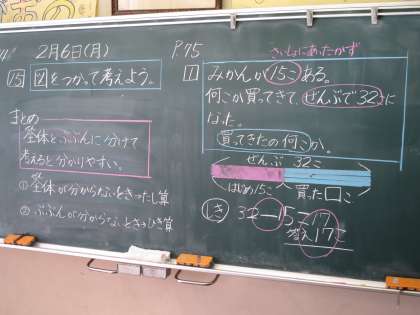 2月6日(月)
15 図をつかって考えよう。
まとめ
全体とぶぶんに分けて
考えると分かりやすい。
①全体が分からないとき→たし算
②ぶぶんが分からないとき→ひき算
P75
さいしょにあったかず
1 みかんが15こある。
何こか買ってきて、ぜんぶで32こに
なった。
買ってきたの何こか。
ぜんぶ 32こ
はじめ15こ 買った□こ
しき 32-15=17
答え17こ